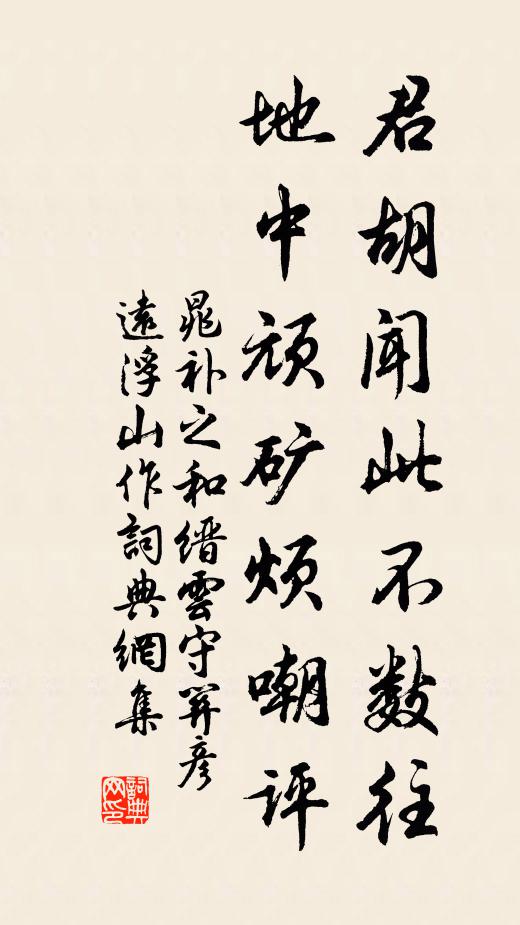 君胡闻此不数往
地中顽矿烦嘲评
晁补之和缙雲守关彦
遠浮山作詞典網集
詞典